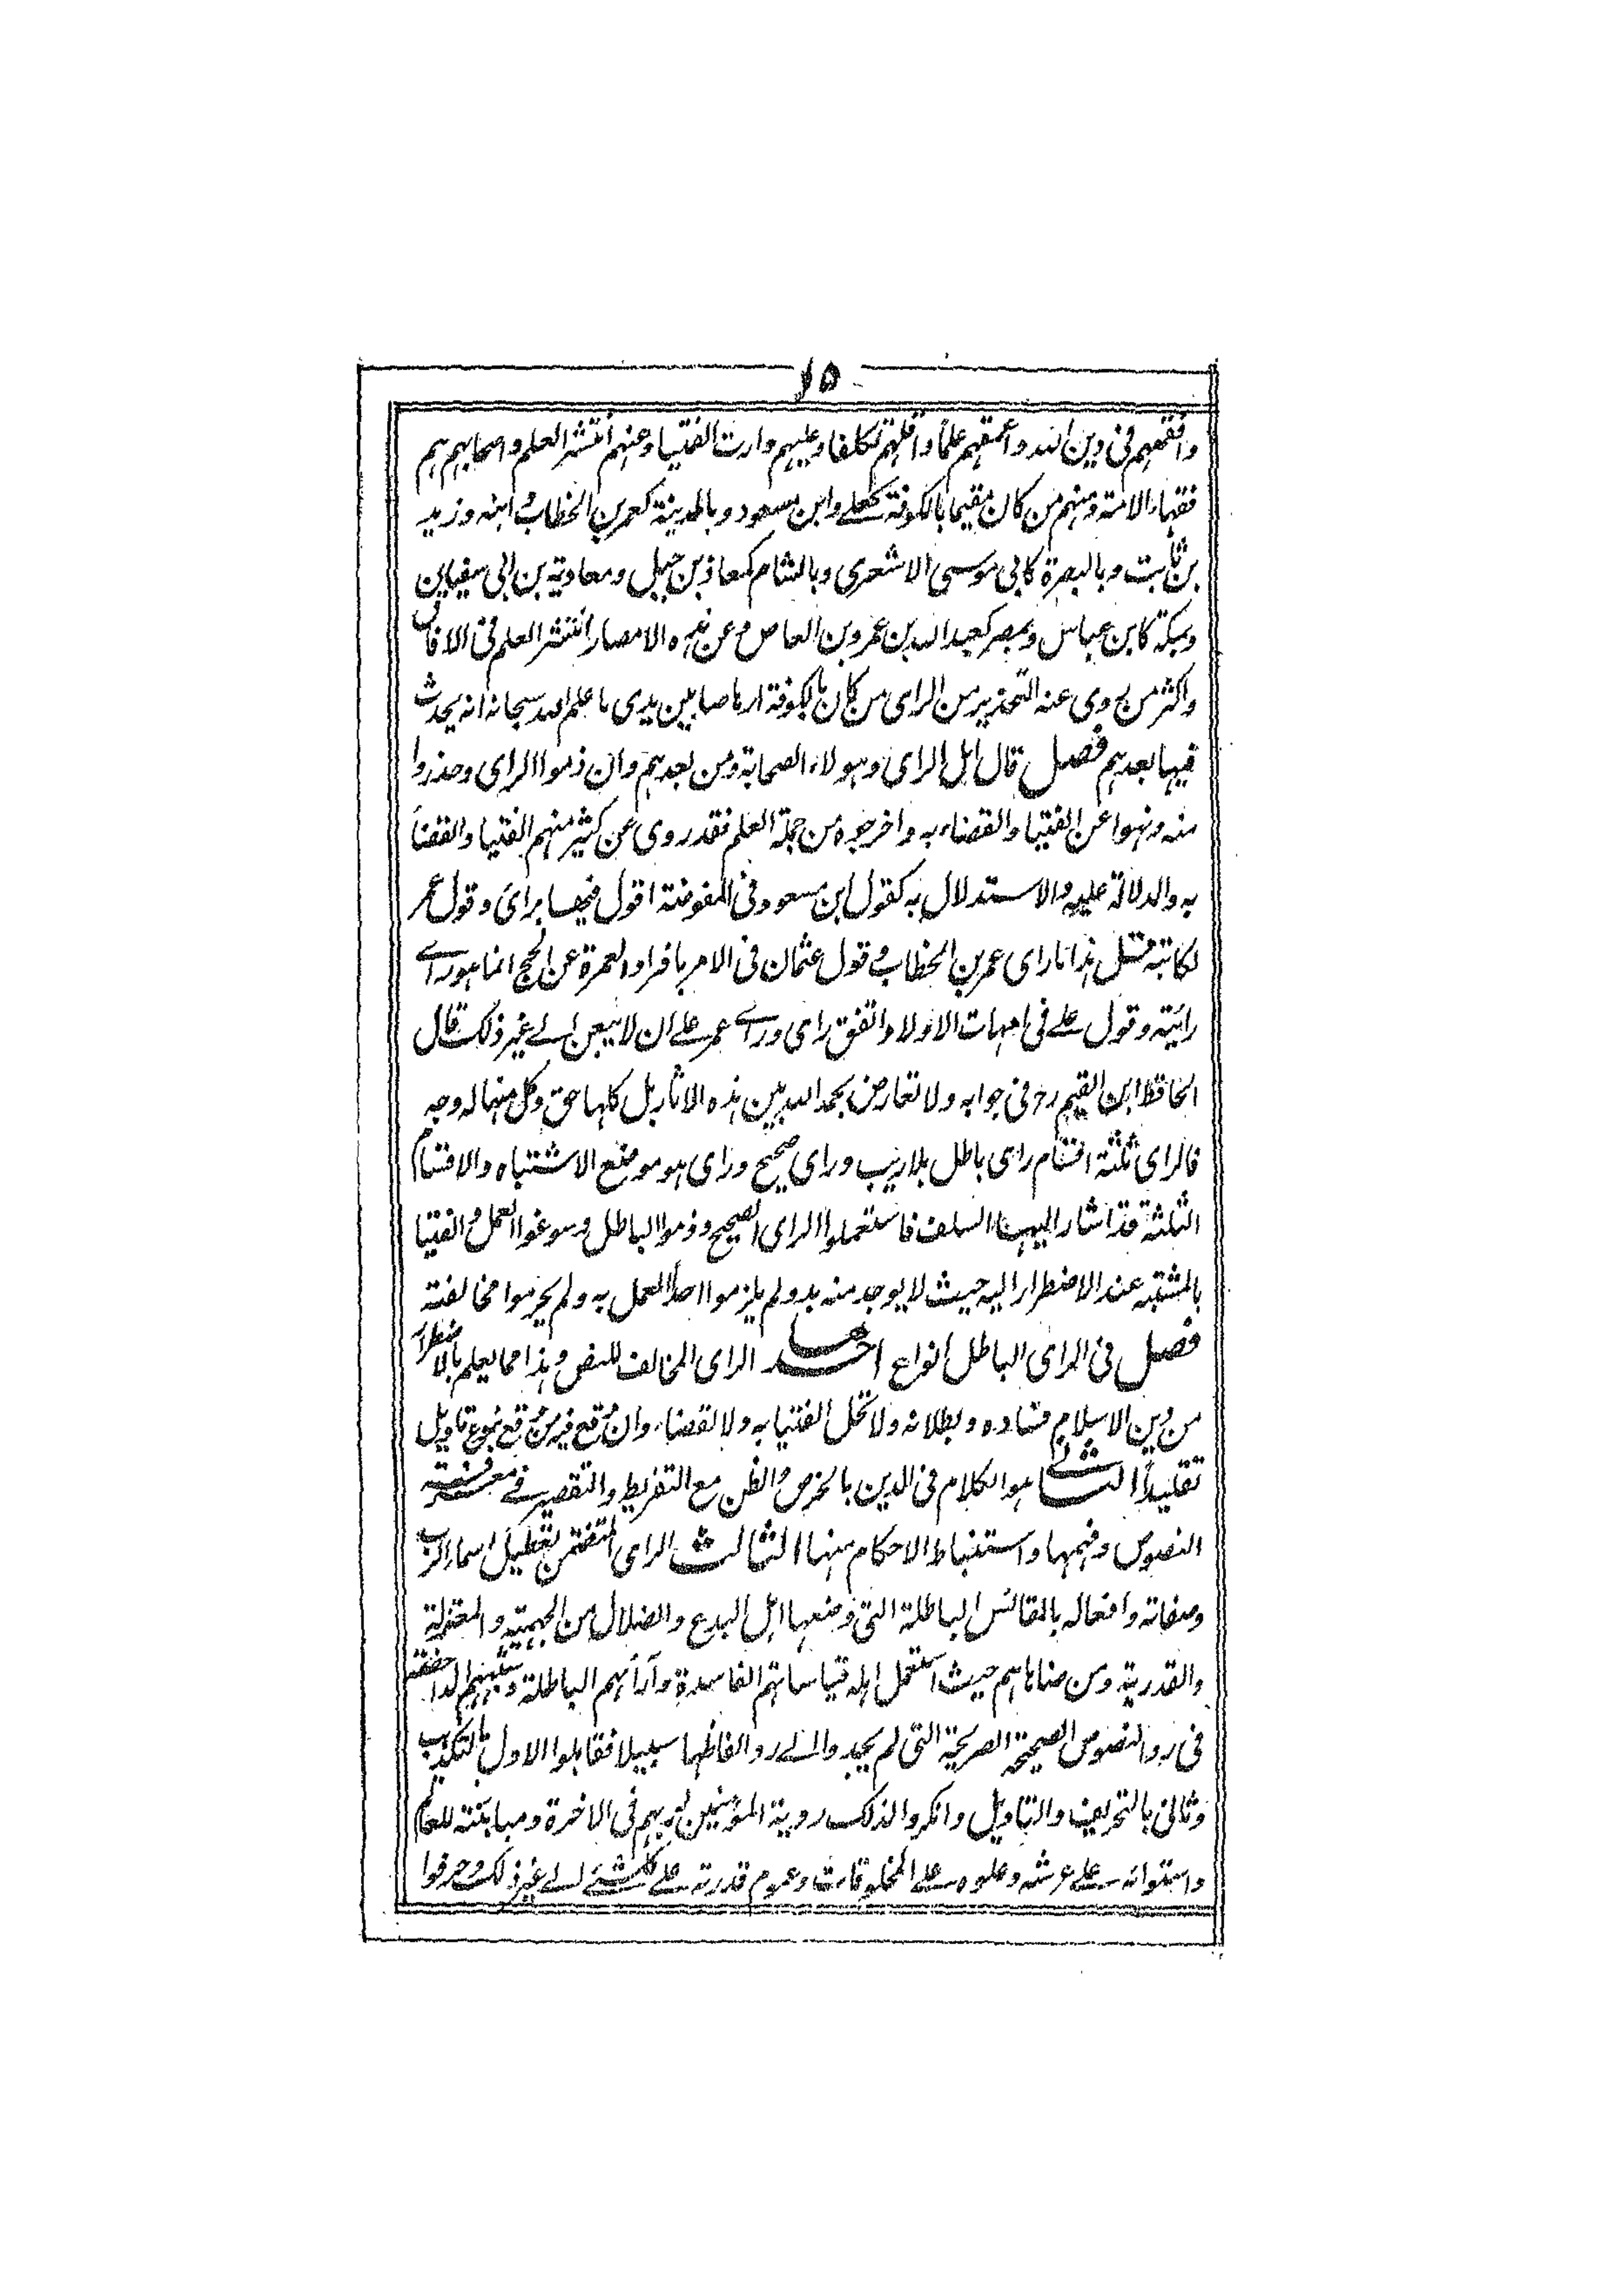 ١٥
وافقههم فى دين الله واعمقهم علماً واقلهم تكلفا وعليهم دارت الفتيا وعنهم انتشر العلم واصحابهم هم
فقهاء الامة ومنهم من كان مقيما بالكوفة كعلى وابن مسعود وبالمدينة كعمر بن الخطاب وابنه وزيد
بن ثابت وبالبصرة كابى موسى الاشعرى وبالشام كمعاذ بن جبل ومعاوية بن ابى سفيان
وبمكة كابن عباس وبمصر كعبد الله بن عمرو بن العاص وعن هذه الامصار انتشر العلم فى الافاق
واكثر من روى عنه التحذير من الراى من كان بالكوفة ارهاصا بين يدى ما علم الله سبحانه انه يحدث
فيها بعدهم فصل قال اهل الراى وهولاء الصحابة ومن بعدهم وان ذموا الراى وحذروا
منه ونهوا عن الفتيا والقضاء به واخرجوه من جملة العلم فقد روى عن كثير منهم الفتيا والقضأ
به والدلالة عليه والاستدلال به كقول ابن مسعود فى المفوضة اقول فيها برائ وقول عمر
لكاتبه قل هذا ما راى عمر بن الخطاب وقول عثمان فى الامر بافراد العمرة عن الحج انما هو راى
رايته وقول على فى امهات الاولاد اتفق رايى وراى عمر على ان لا يبعن الى غير ذلك قال
الحافظ ابن القيم رح فى جوابه ولا تعارض بحمد الله بين هذه الاثار بل كلها حق وكل منها له وجه
فالراى ثلثة اقسام راى باطل بلا ريب وراى صحيح وراى هو موضع الاشتباه والاقسام
الثلثة قد اشار اليها السلف فاستعملوا الراى الصحيح وذموا الباطل وسوغوا العمل والفتيا
بالمشتبه عند الاضطرار اليه حيث لا يوجد منه بد ولم يلزموا احداً العمل به ولم يحرموا مخالفته
فصل فى الراى الباطل انواع احدها الراى المخالف للنص وهذا مما يعلم بالاضطرار
من دين الاسلام فساده وبطلانه ولا تحل الفتيا به ولا القضاء وان وقع فيه من وقع بنوع تاويل
تقليداً الثانى هو الكلام فى الدين بالخرص والظن مع التفريط والتقصير فى معرفته
النصوص وفهمها واستنباط الاحكام منها الثالث الراى المتضمن تعطيل اسماء الرب
وصفاته وافعاله بالمقائس الباطلة التى وضعها اهل البدع والضلال من الجهمية والمعتزلة
والقدرية ومن ضاهاهم حيث استعمل اهله قياساتهم الفاسدة وآرأهم الباطلة وشبههم الداحضة
فى رد النصوص الصحيحة الصريحة التى لم يجدوا الى رد الفاظها سبيلا فقابلوا الاول بالتكذيب
وثانى بالتحريف والتاويل وانكروا لذلك روية المؤمنين لربهم فى الاخرة ومباينته للعالم
واستوائه على عرشه وعلوه على المخلوقات وعموم قدرته على كل شئ الى غير ذلك وحرفوا